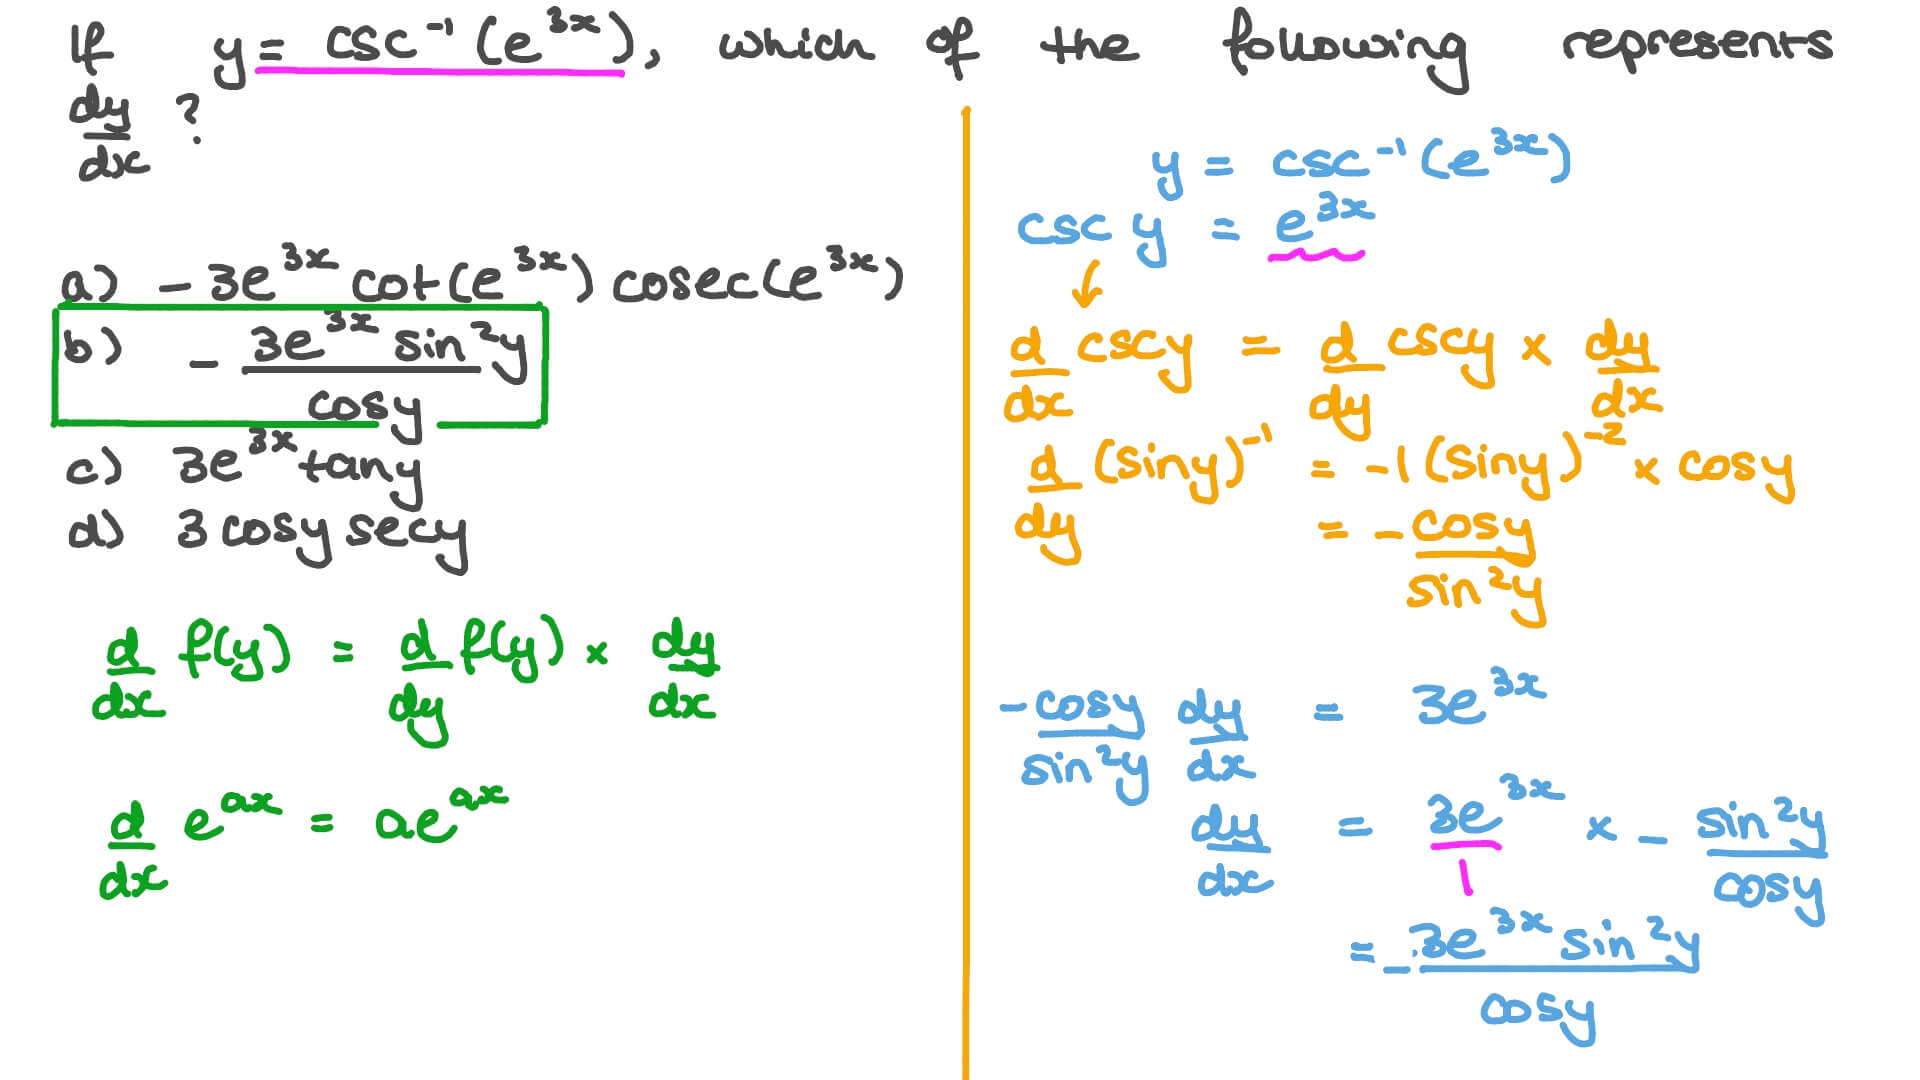 If y = csc⁻¹(e³ˣ), which of the following represents
dy/dx ?
a) -3e³ˣ cot(e³ˣ) cosec(e³ˣ)
b) - 3e³ˣ sin²y / cosy
c) 3e³ˣ tany
d) 3 cosy secy
d/dx f(y) = d/dy f(y) × dy/dx
d/dx eᵃˣ = aeᵃˣ
y = csc⁻¹(e³ˣ)
csc y = e³ˣ
d/dx cscy = d/dy cscy × dy/dx
d/dy (siny)⁻¹ = -1(siny)⁻² × cosy
= - cosy / sin²y
- cosy / sin²y dy/dx = 3e³ˣ
dy/dx = 3e³ˣ / 1 × - sin²y / cosy
= - 3e³ˣ sin²y / cosy